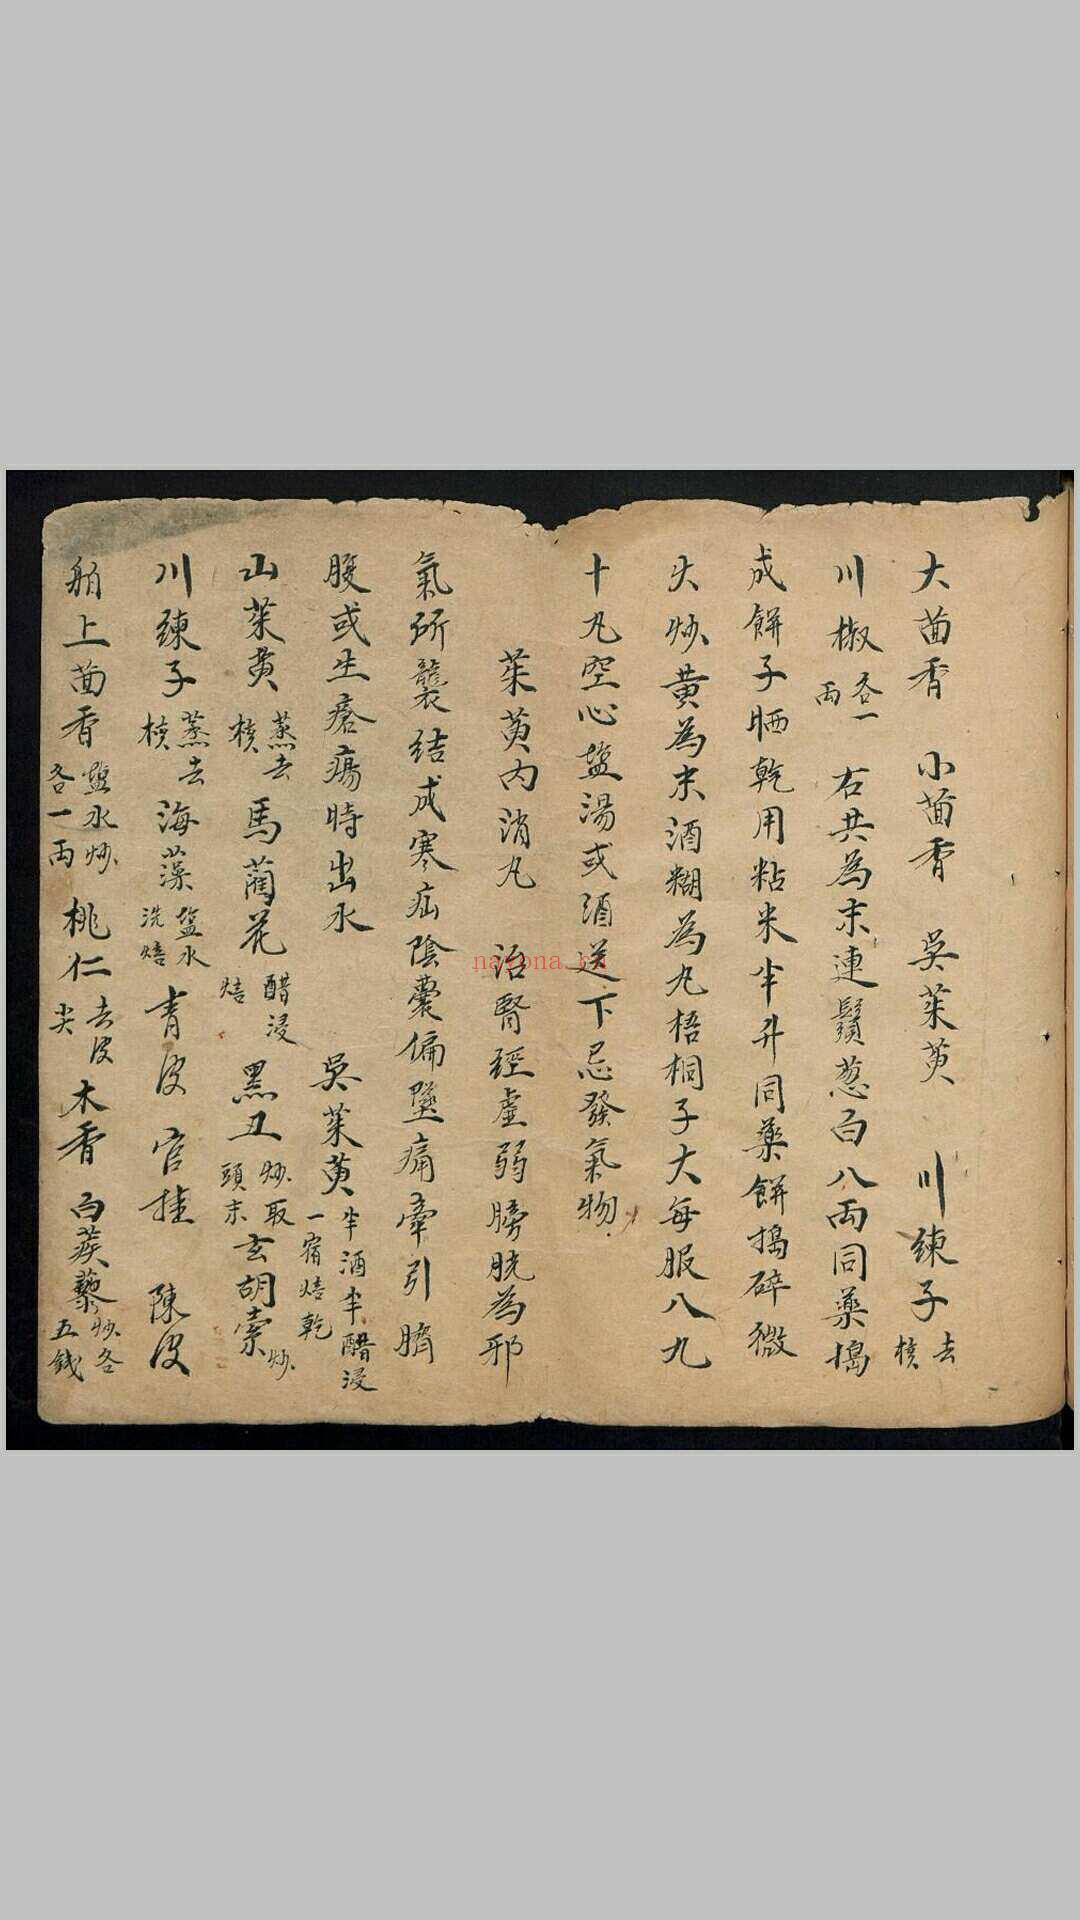 大茴香 小茴香 吳茱萸 川練子去核
川椒各一兩 右共為末連鬚葱白八兩同藥搗
成餅子晒乾用粘米半升同藥餅搗碎微
火炒黃為末酒糊為丸梧桐子大每服八九
十丸空心盐湯或酒送下忌發氣物
茱萸内消丸 治腎經虚弱膀胱為邪
氣所襲結成寒疝陰囊偏墜痛牽引臍
腹或生瘡瘍時出水 吳茱萸半酒半醋浸一宿焙乾
山茱萸蒸去核 馬藺花醋浸焙 黑丑炒取頭末 玄胡索炒
川練子蒸去核 海藻盐水洗焙 青皮 官桂 陳皮
舶上茴香盐水炒各一兩 桃仁去皮尖 木香 白蒺藜炒各五錢
nayona.cn